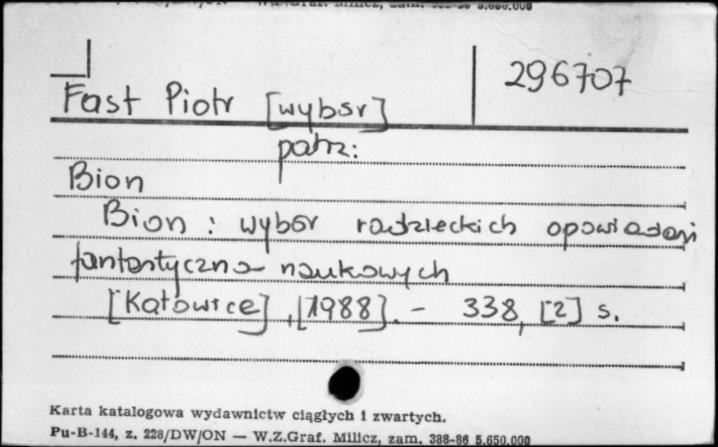 296707
Fast Piotr [wybór]
patrz:
Bion
Bion : wybór radzieckich opowiadań
fantastyczno-naukowych
[Katowice], [1988]. - 338, [2] s.
Karta katalogowa wydawnictw ciągłych i zwartych.
Pu-B-144, z. 228/DW/ON — W.Z.Graf. Milicz, zam. 388-86 5.650.000